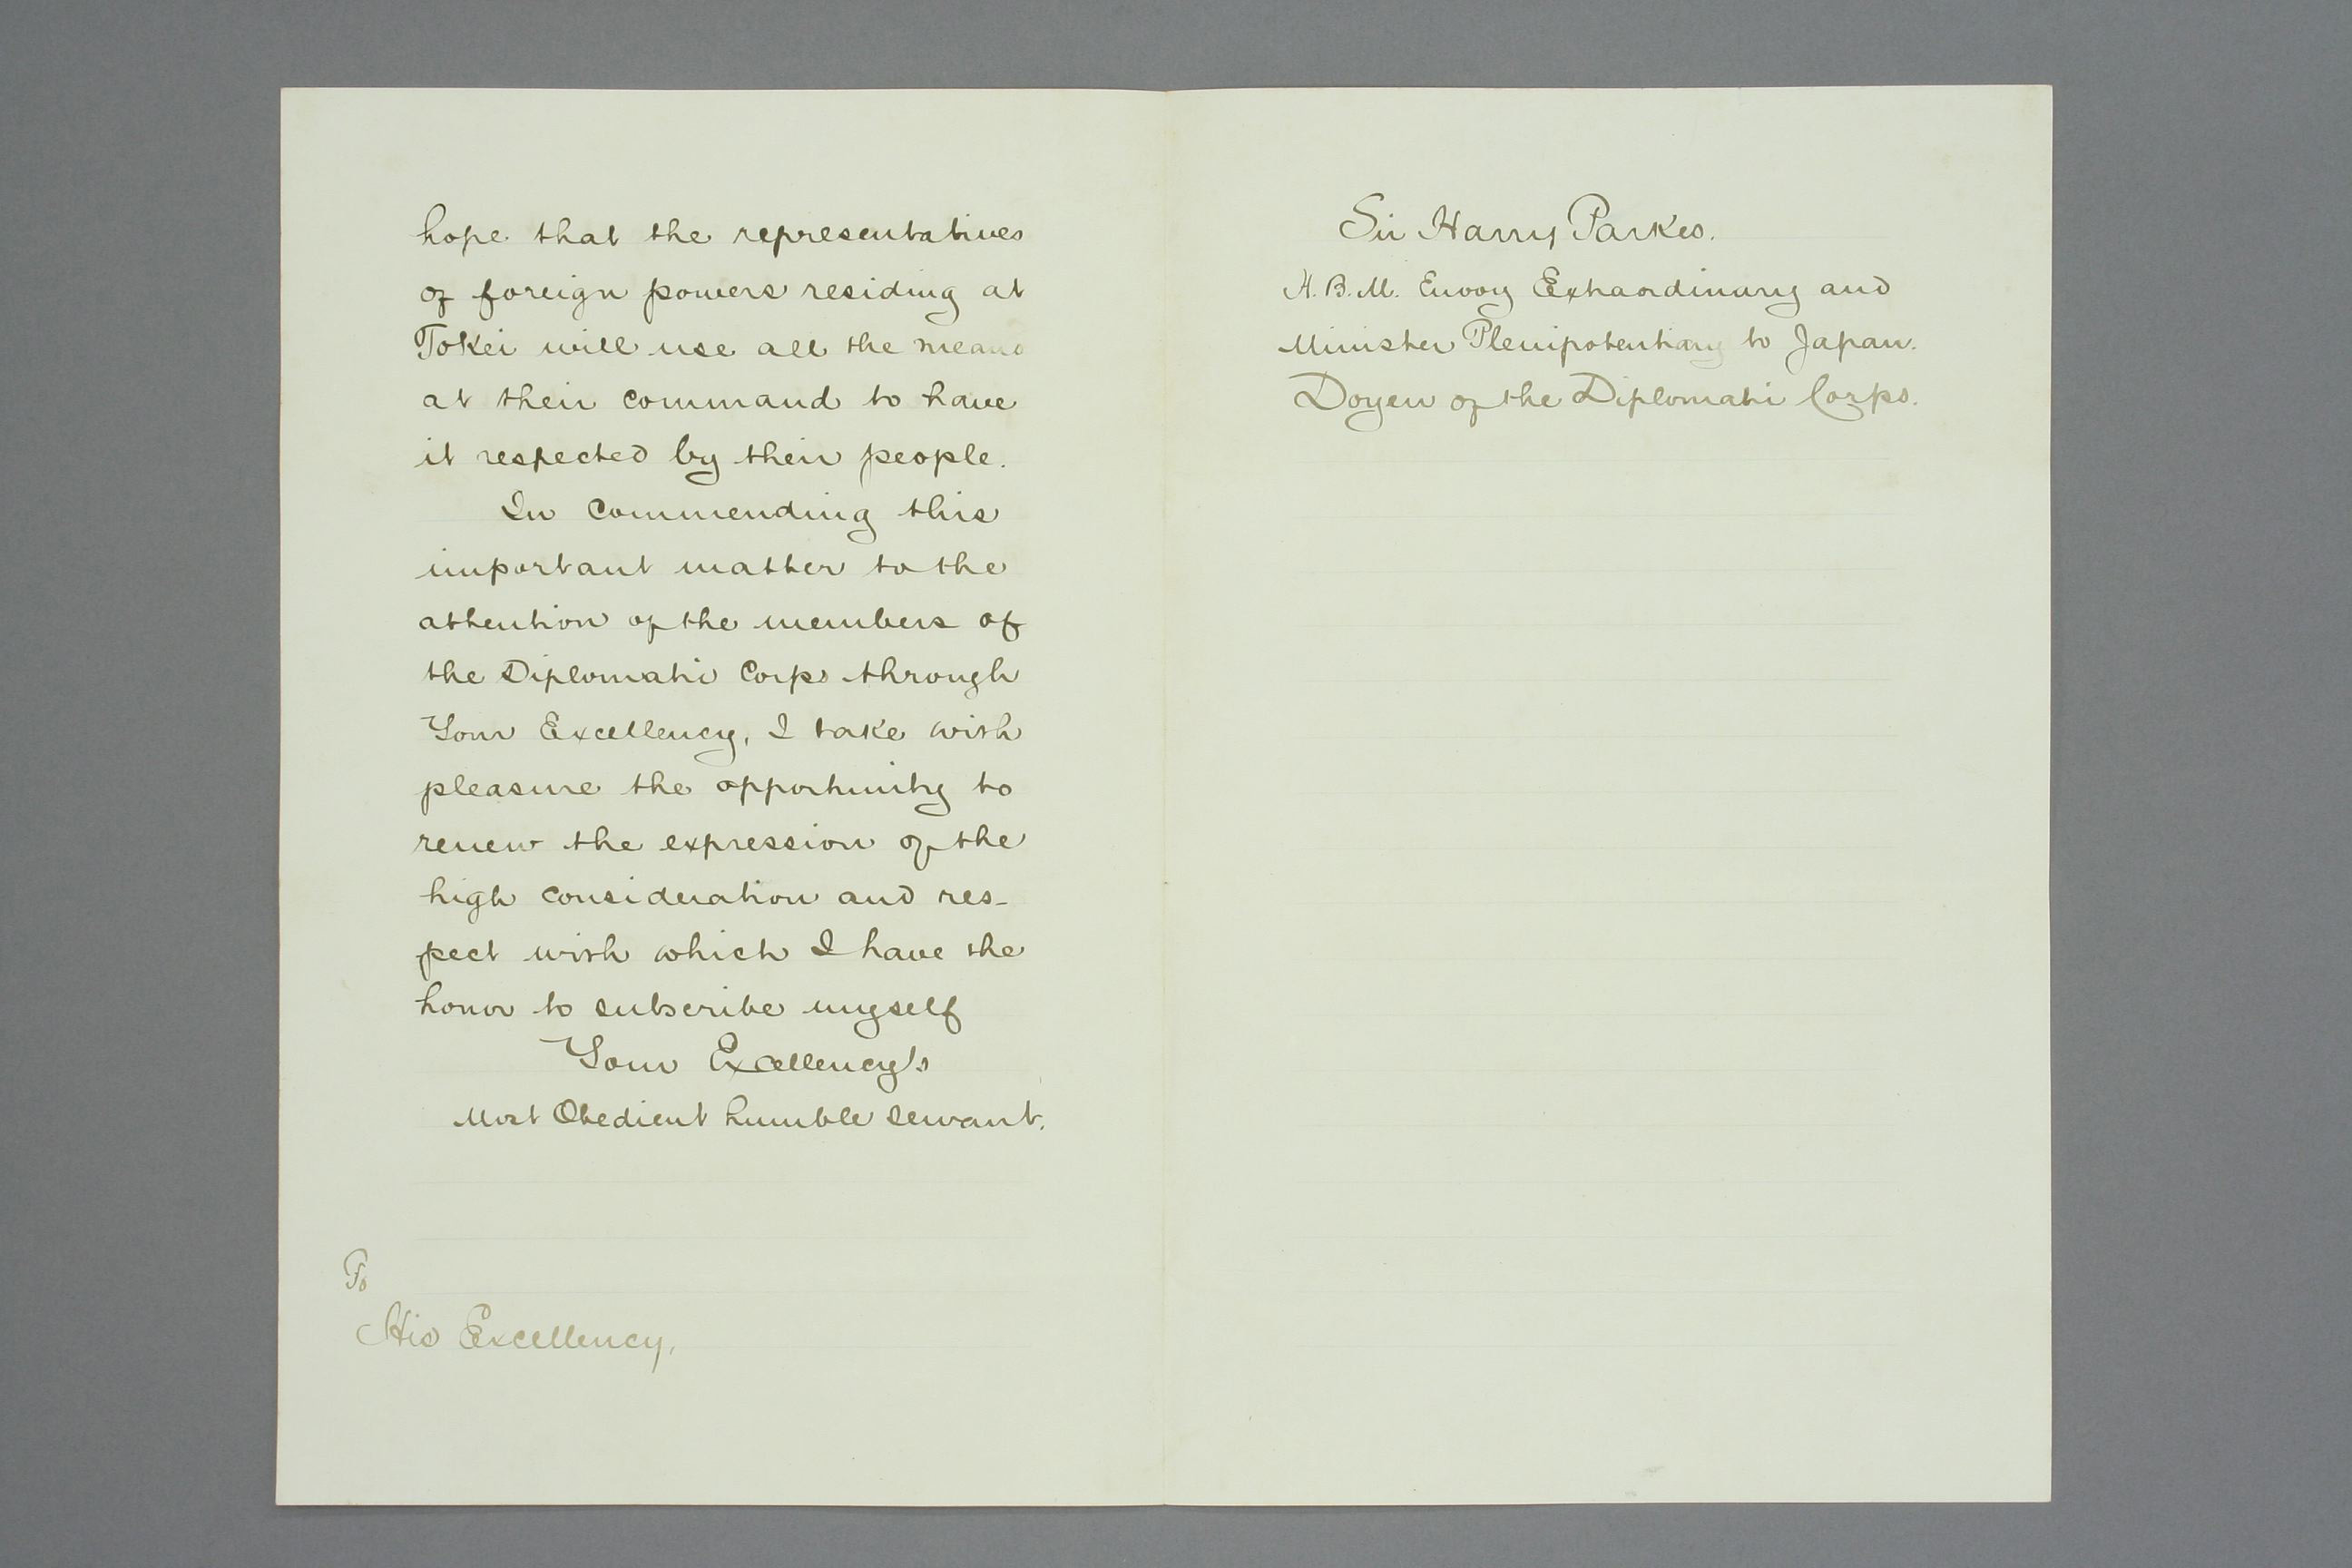 hope that the representatives
of foreign powers residing at
Tokei will use all the means
at their command to have
it respected by their people.
In commending this
important matter to the
attention of the members of
the Diplomatic Corps through
Your Excellency, I take with
pleasure the opportunity to
renew the expression of the
high consideration and res-
pect with which I have the
honor to subscribe myself
Your Excellency's
Most Obedient humble servant.
To
His Excellency,
Sir Harry Parkes.
H. B. M. Envoy Extraordinary and
Minister Plenipotentiary to Japan.
Doyen of the Diplomatic Corps.